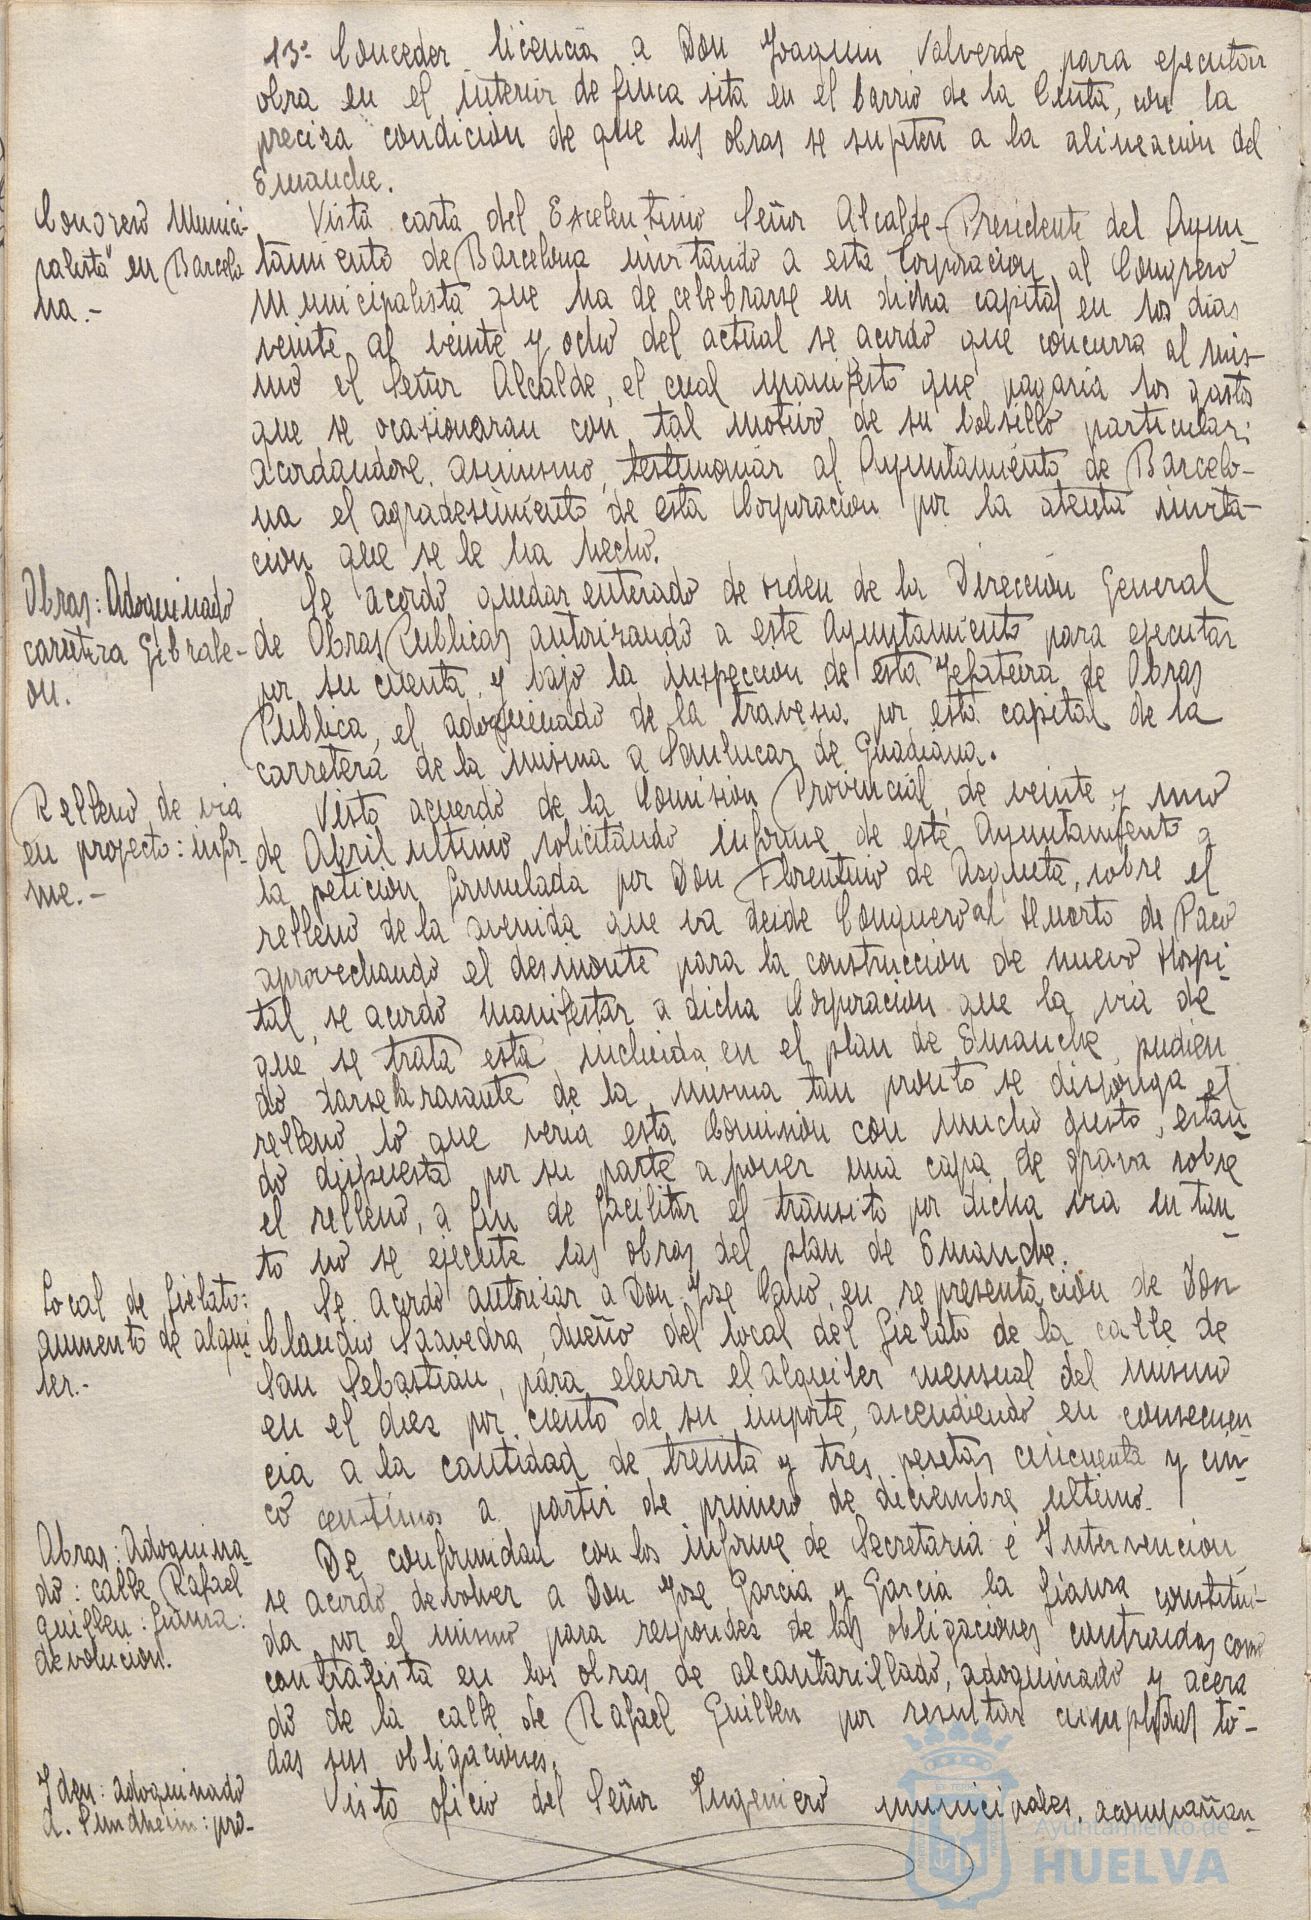 13º Conceder licencia a Don Joaquin Valverde para ejecutar
obra en el interior de finca sita en el barrio de la Cinta, con la
precisa condición de que las obras se sujeten a la alineacion del
Emanche.
Congreso Munici-
palista" en Barcelo
na.-
Vista carta del Excelentimo Señor Alcalde-Presidente del Ayun-
tamiento de Barcelona invitando a esta Corporación al Congreso
municipalista que ha de celebrarse en dicha capital en los días
veinte al veinte y ocho del actual se acordó que concurra al mis-
mo el Señor Alcalde, el cual manifestó que pagaria los gastos
que se ocasionaran con tal motivo de su bolsillo particular;
acordandose, asimismo, testimoniar al Ayuntamiento de Barcelo-
na el agradesimiento de esta Corporación por la atenta invita-
cion que se le ha hecho.
Obras: Adoquinado
carretera Gibrale-
on.
Se acordó quedar enterado de orden de la Dirección General
de Obras Publicas autorizando a este Ayuntamiento para ejecutar
por su cuenta y bajo la inspección de esta Jefatura de Obras
Publica, el adoquinado de la travesia por esta capital de la
carretera de la misma a Sanlucar de Guadiana.
Relleno de via
en proyecto: infor-
me.-
Visto acuerdo de la Comision Provincial de veinte y uno
de Abril ultimo solicitando informe de este Ayuntamiento a
la petición formulada por Don Florentino de Asqueta, sobre el
relleno de la avenida que va desde Conquero al Huerto de Paco
aprovechando el desmonte para la construccion de nuevo Hospi-
tal, se acordó manifestar a dicha Corporacion que la via de
que se trata esta incluida en el plan de Emanche, pudien
do darse la rasante de la misma tan pronto se disponga el
relleno, lo que veria esta Comision con mucho gusto, estan-
do dispuesta por su parte a poner una capa de grava sobre
el relleno, a fin de facilitar el transito por dicha via en tan-
to no se ejecute las obras del plan de Emanche.
Local de fielato:
aumento de alqui-
ler.-
Se acordó autorizar a Don Jose Cano, en representación de Don
Claudio Saavedra, dueño del local del fielato de la calle de
San Sebastian, para elevar el alquiler mensual del mismo
en el diez por ciento de su importe, ascendiendo en consecuen
cia a la cantidad de treinta y tres pesetas cincuenta y cin-
co centimos a partir de primero de diciembre ultimo.
Obras: Adoquina-
do: calle Rafael
Guillen: fianza:
devolución.
De conformidad con los informe de Secretaria é Intervención
se acordó devolver a Don Jose Garcia y Garcia la fianza constitui-
da por el mismo para responder de las obligaciones contraidas como
contratista en los obras de alcantarillado, adoquinado y acera
do de la calle de Rafael Guillen por resultar cumplidas to-
das sus obligaciones.
Iden: adoquinado
A. Sundheim: pro-
Visto oficio del Señor Ingeniero municipales, acompañan-
Ayuntamiento de
HUELVA